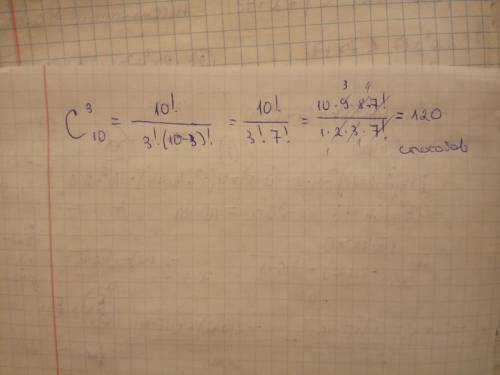 C³₁₀ = 10! / 3!·(10-3)! = 10! / 3!·7! = 10·9·8·7! / 1·2·3·7! = 120
способов